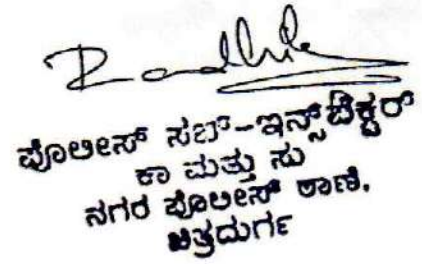 Radhika
ಪೊಲೀಸ್ ಸಬ್-ಇನ್ಸ್‌ಪೆಕ್ಟರ್
ಕಾ ಮತ್ತು ಸು
ನಗರ ಪೊಲೀಸ್ ಠಾಣೆ,
ಚಿತ್ರದುರ್ಗ